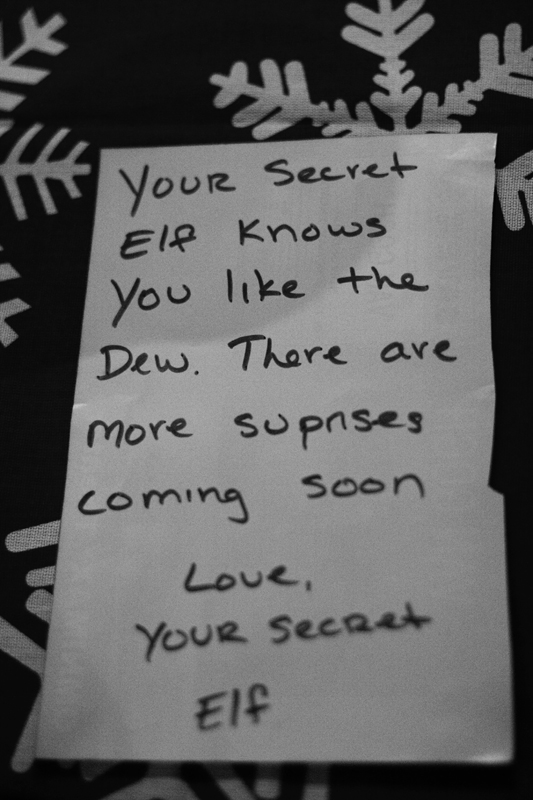 Your Secret
Elf Knows
You like the
Dew. There are
more suprises
coming soon
Love,
Your Secret
Elf